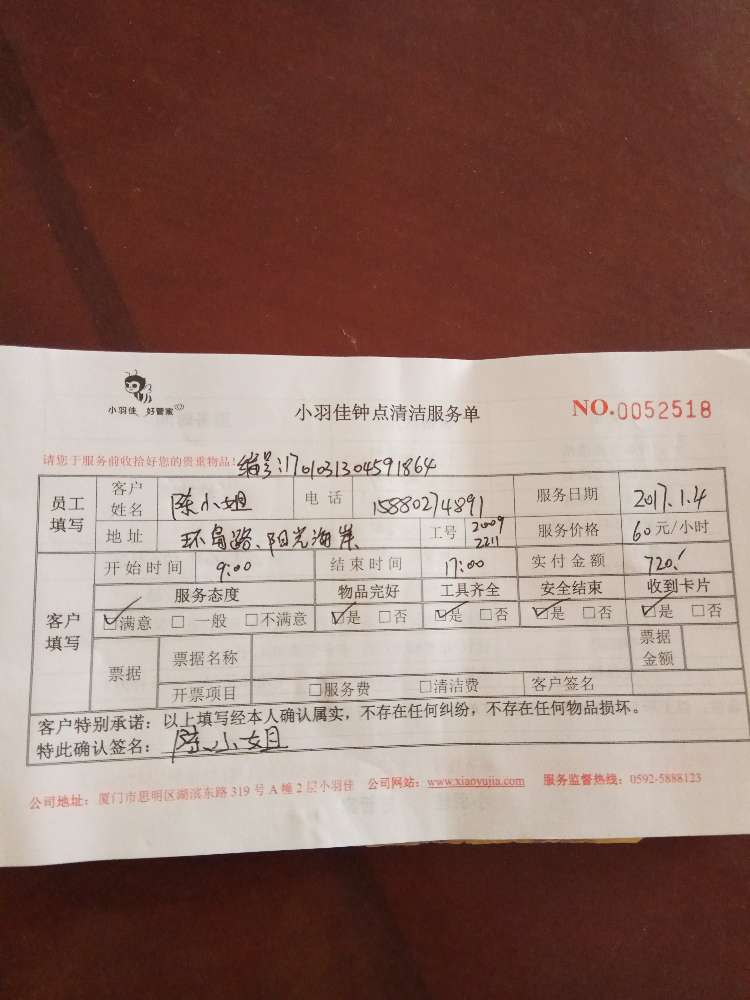 小羽佳 好管家
小羽佳钟点清洁服务单
NO.0052518
请您于服务前收拾好您的贵重物品!
编号:1701031304591864
员工填写 客户姓名 陈小姐 电话 15880274891 服务日期 2017.1.4
地址 环岛路、阳光海岸 工号 2009 2211 服务价格 60元/小时
客户填写 开始时间 9:00 结束时间 17:00 实付金额 720.!
服务态度 物品完好 工具齐全 安全结束 收到卡片
☑满意 □一般 □不满意 ☑是 □否 ☑是 □否 ☑是 □否 ☑是 □否
票据 票据名称 票据金额
开票项目 □服务费 □清洁费 客户签名
客户特别承诺:以上填写经本人确认属实,不存在任何纠纷,不存在任何物品损坏。
特此确认签名:陈小姐
公司地址:厦门市思明区湖滨东路319号A幢2层小羽佳 公司网站:www.xiaoyujia.com 服务监督热线:0592-5888123